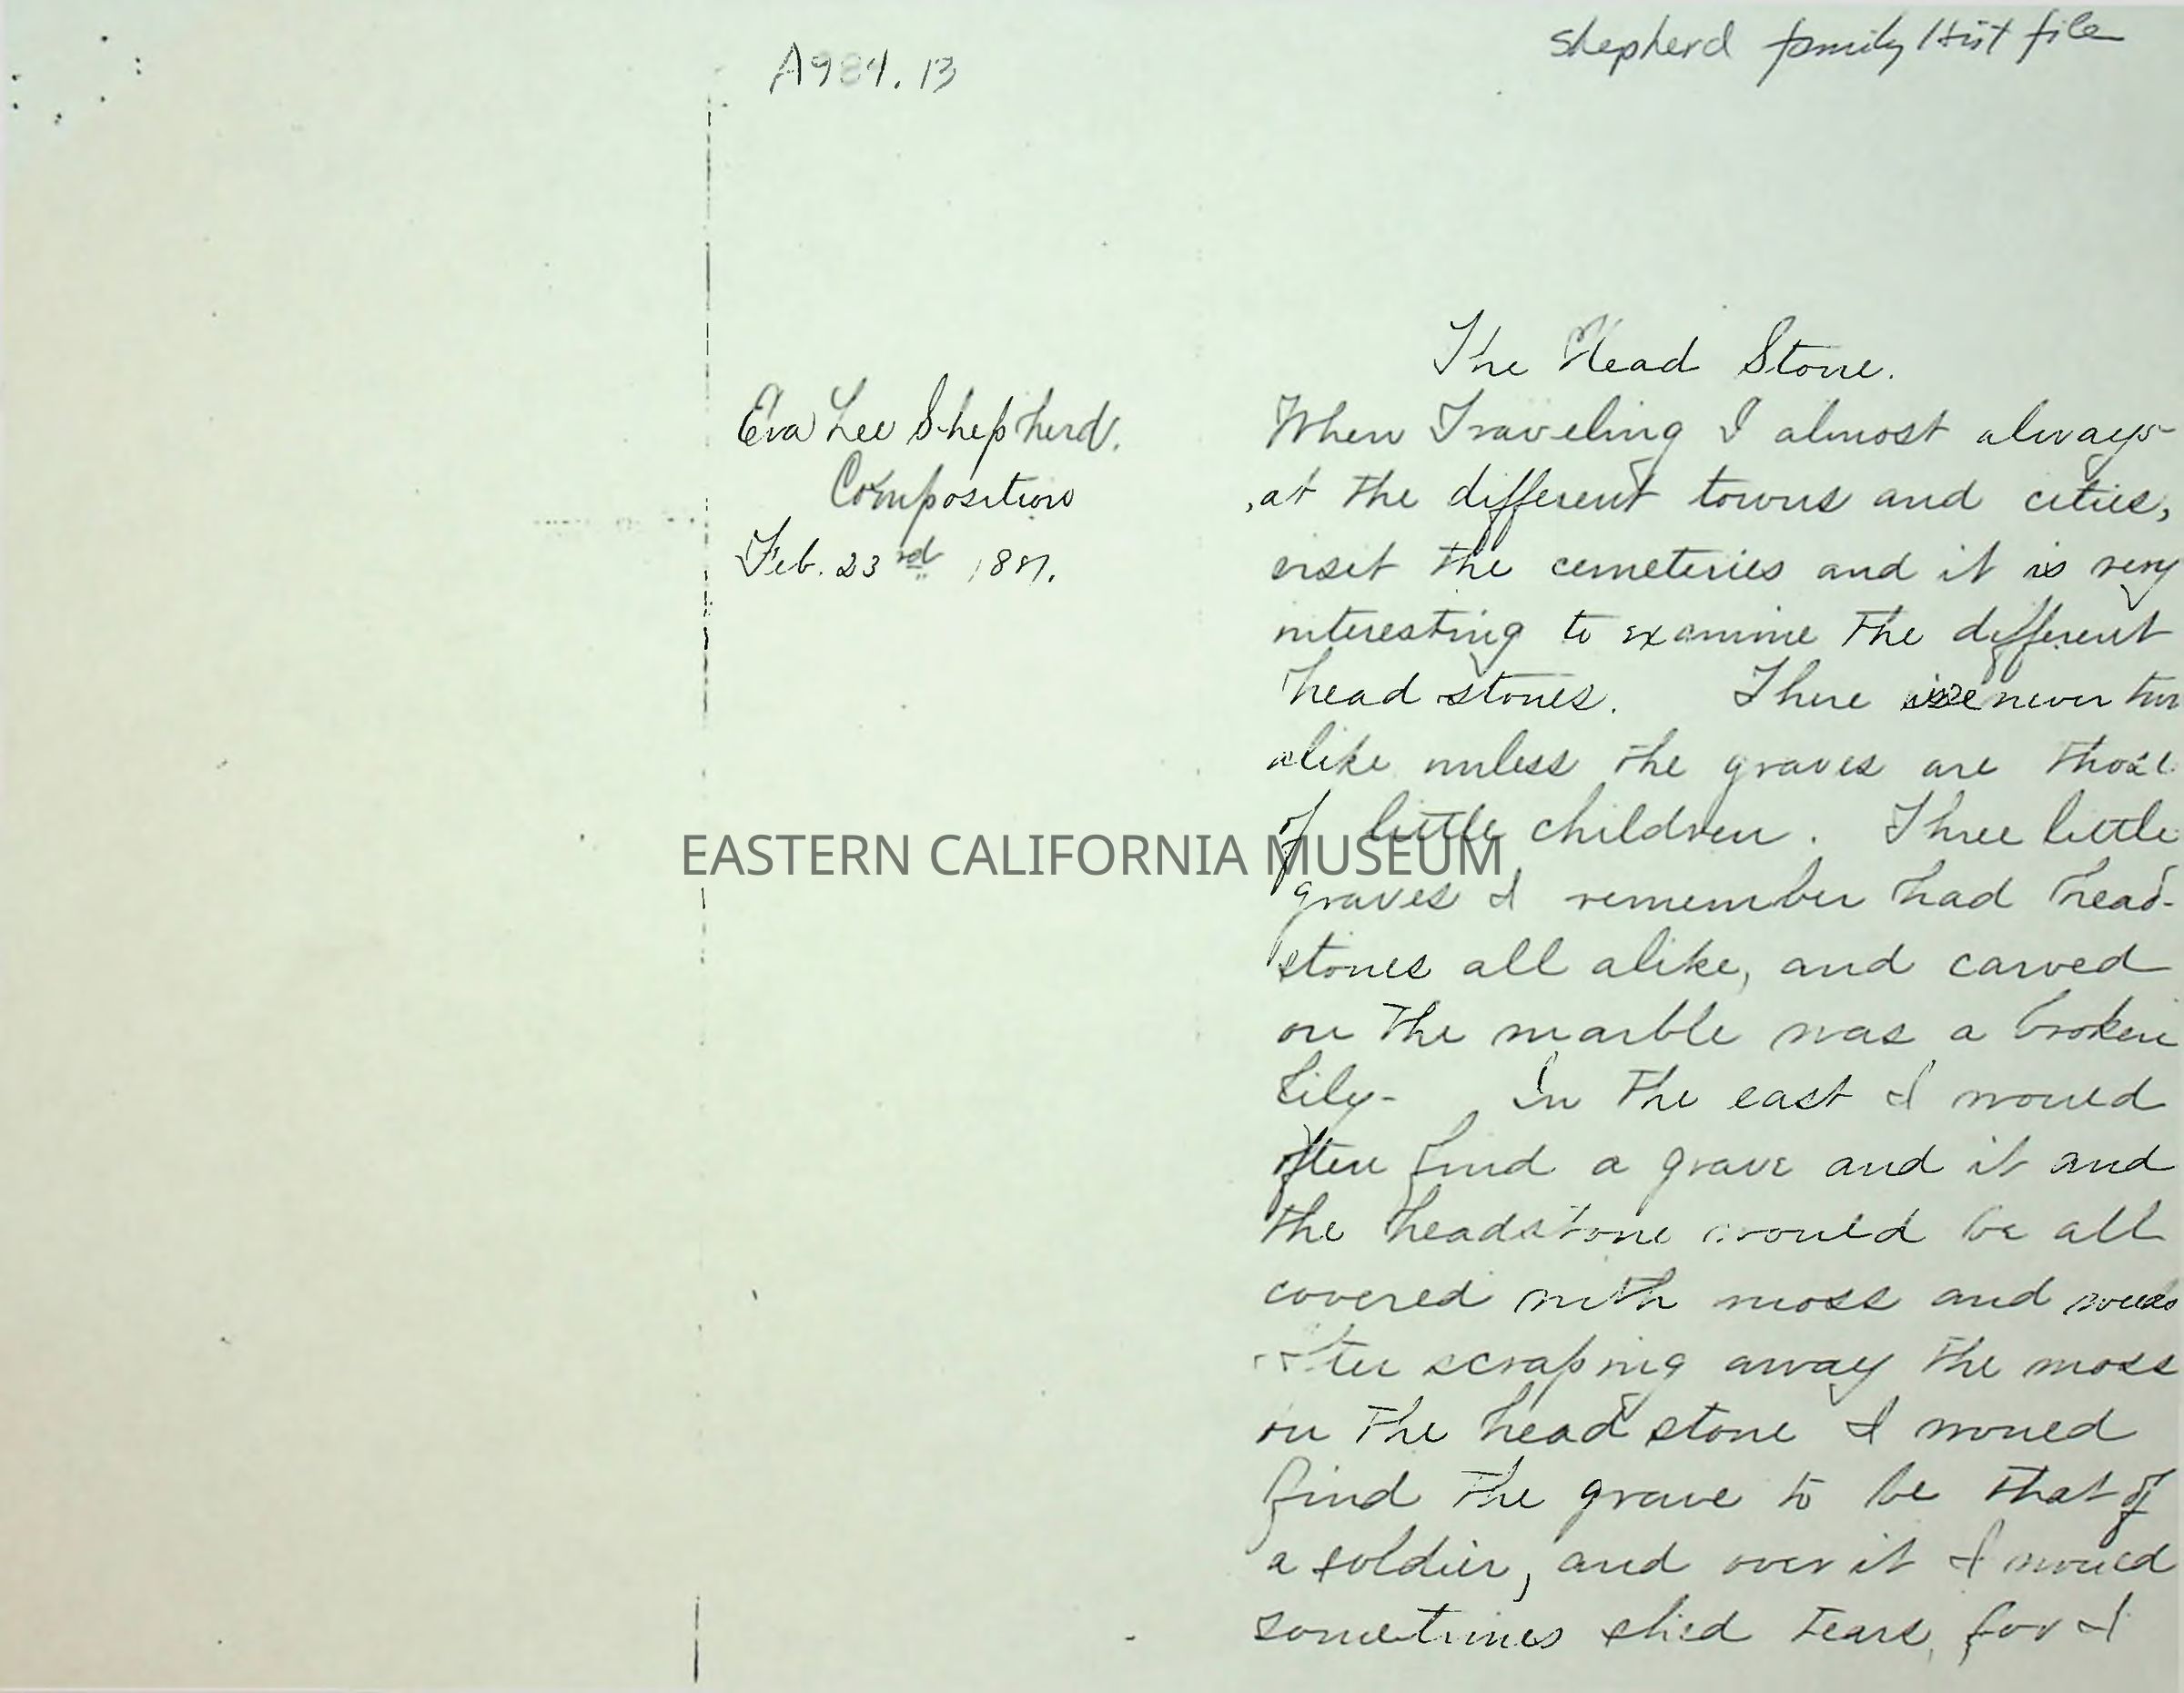 A984.13
shepherd family Hist file
Eva Lee Shepherd.
Composition
Feb. 23rd
The Head Stone.
When Traveling I almost always
at the different towns and cities,
viset the cemeteries and it is very
interesting to examine the different
head stones. There never two
alike unless the graves are those
of little children. Three little
graves I remember had head-
stones all alike, and carved
on the marble was a broken
Lily- In the east I would
often find a grave and it and
the headstone would be all
covered with moss and weeds
after scraping away the moss
on the head stone I would
find the grave to be that of
a soldier, and over it I would
sometimes shed tears, for I
EASTERN CALIFORNIA MUSEUM